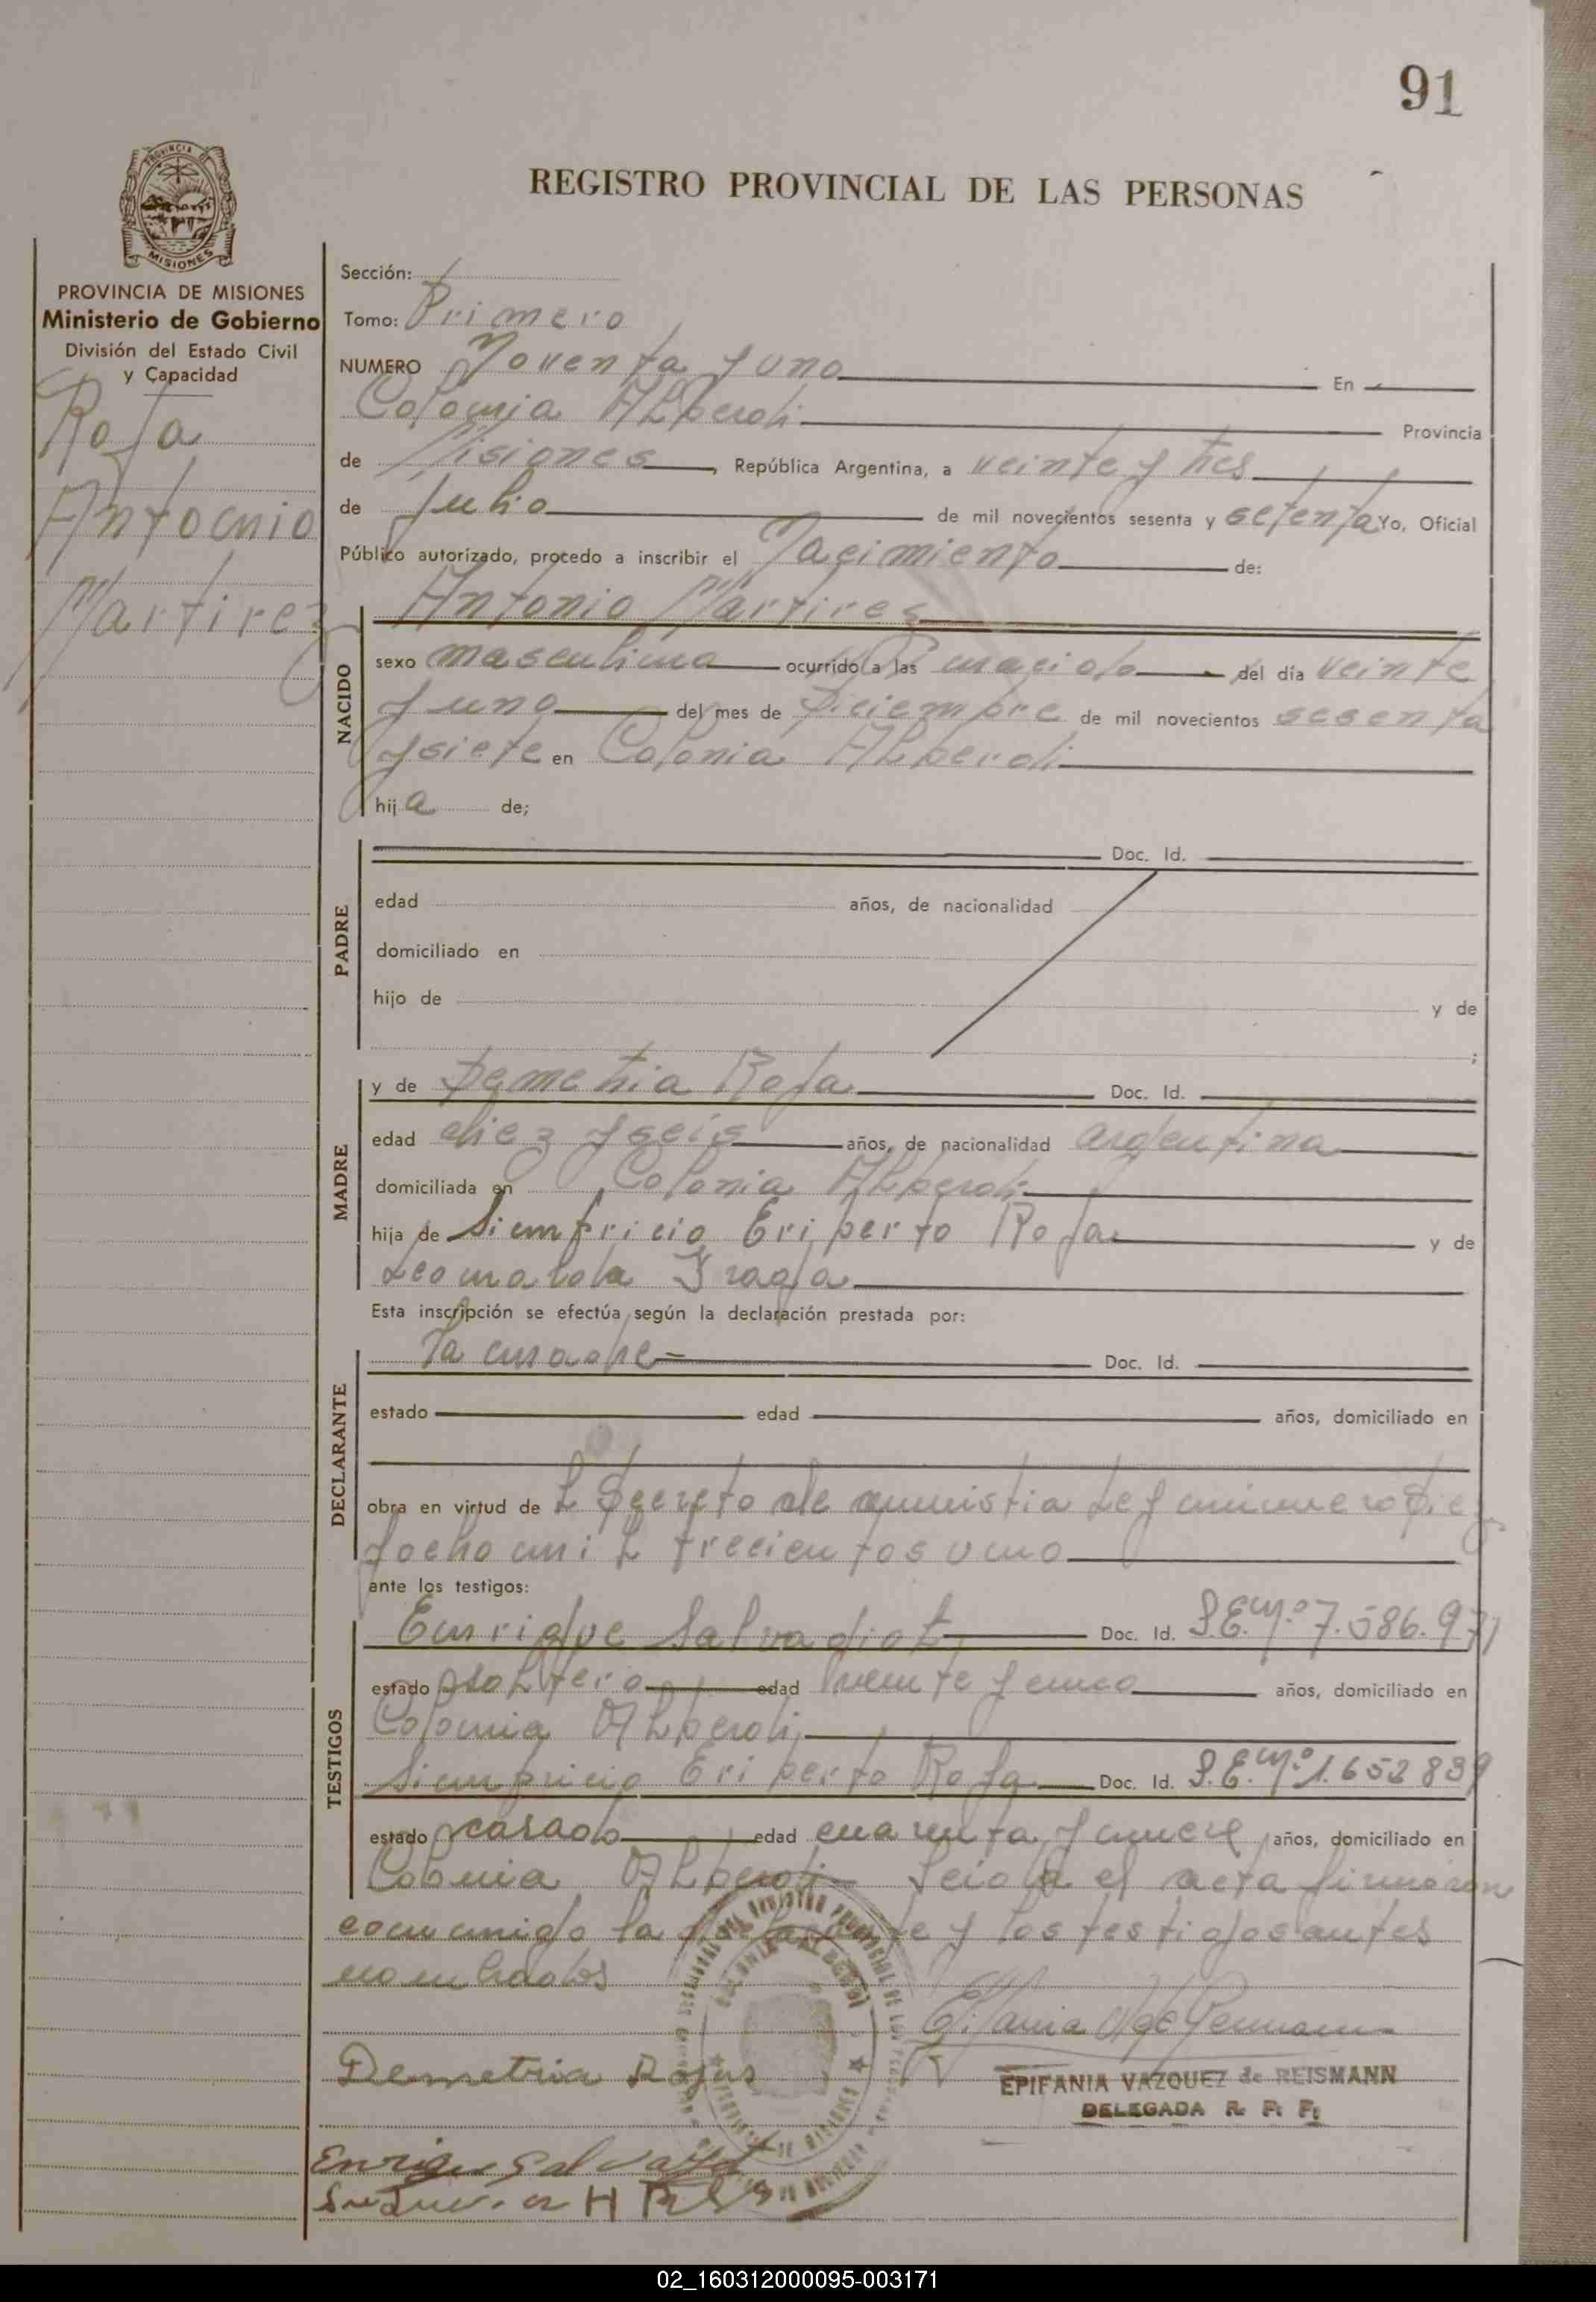 91
PROVINCIA DE
MISIONES
REGISTRO PROVINCIAL DE LAS PERSONAS
PROVINCIA DE MISIONES
Ministerio de Gobierno
División del Estado Civil
y Capacidad
Roja
Antocnio
Martirez
Sección:
Tomo: Primero
NUMERO Noventa y uno En
Colonia Alberdi Provincia
de Misiones, República Argentina, a veinte y tres
de Julio de mil novecientos sesenta y setenta Yo, Oficial
Público autorizado, procedo a inscribir el Nacimiento de:
NACIDO
Antonio Martires
sexo masculino ocurrido a las del día veinte
y uno del mes de Diciembre de mil novecientos sesenta
y siete en Colonia Alberdi
hija de;
PADRE
Doc. Id.
edad años, de nacionalidad
domiciliado en
hijo de y de
;
MADRE
y de Demetria Roja Doc. Id.
edad diez y seis años, de nacionalidad argentina
domiciliada en Colonia Alberdi
hija de Eriberto Roja y de
Esta inscripción se efectúa según la declaración prestada por:
DECLARANTE
la madre Doc. Id.
estado edad años, domiciliado en
obra en virtud de L Decreto de amnistia Ley numero Diez
y ocho mil trecientos uno
ante los testigos:
TESTIGOS
Enrique Salvadiot Doc. Id. L.E. Nº 7.586.971
estado soltero edad años, domiciliado en
Colonia Alberdi
Eriberto Roja Doc. Id. L.E. Nº 1.652839
estado casado edad cuarenta y nueve años, domiciliado en
Colonia Alberdi Leida el acta firmaron
conmigo la declarante y los testigos antes
nombrados
Demetria Rojas
EPIFANIA VAZQUEZ de REISMANN
DELEGADA R. P. P.
Enrique Salvadiot
02_160312000095-003171